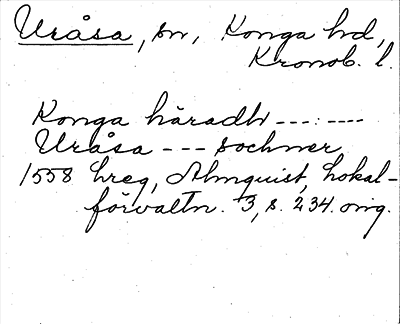 Uråsa, sn, Konga hd,
Kronob. l.
Konga häradh ---:----
Uråsa --- sochner
1558 hreg, Almquist, Lokal-
förvaltn. 3, s. 234. orig.